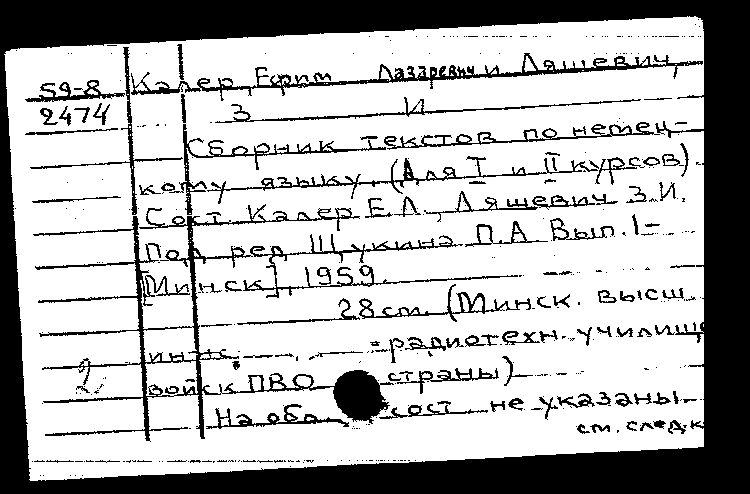 59-8 Калер, Ефим Лазаревич и Ляшевич,
2474 З И
Сборник текстов по немец-
кому языку. (Для I и II курсов).
Сост. Калер Е.Л., Ляшевич З.И.
Под ред Щукина П.А Вып. 1-
[Минск], 1959.
28 см. (Минск. высш
инж. - радиотехн. училище
2. войск ПВО страны)
На обл. сост. не указаны.
см. след. к